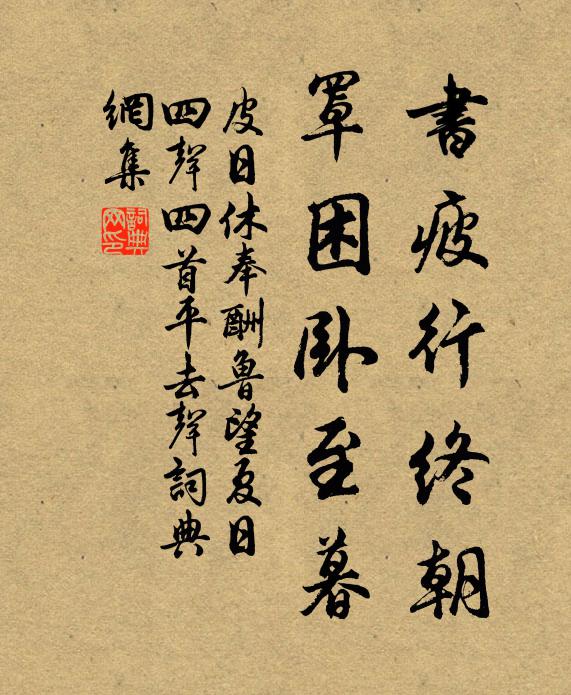 書疲行終朝
罩困卧至暮
皮日休奉酬魯望夏日
四聲四首平去聲詞典
網集
詞典网印